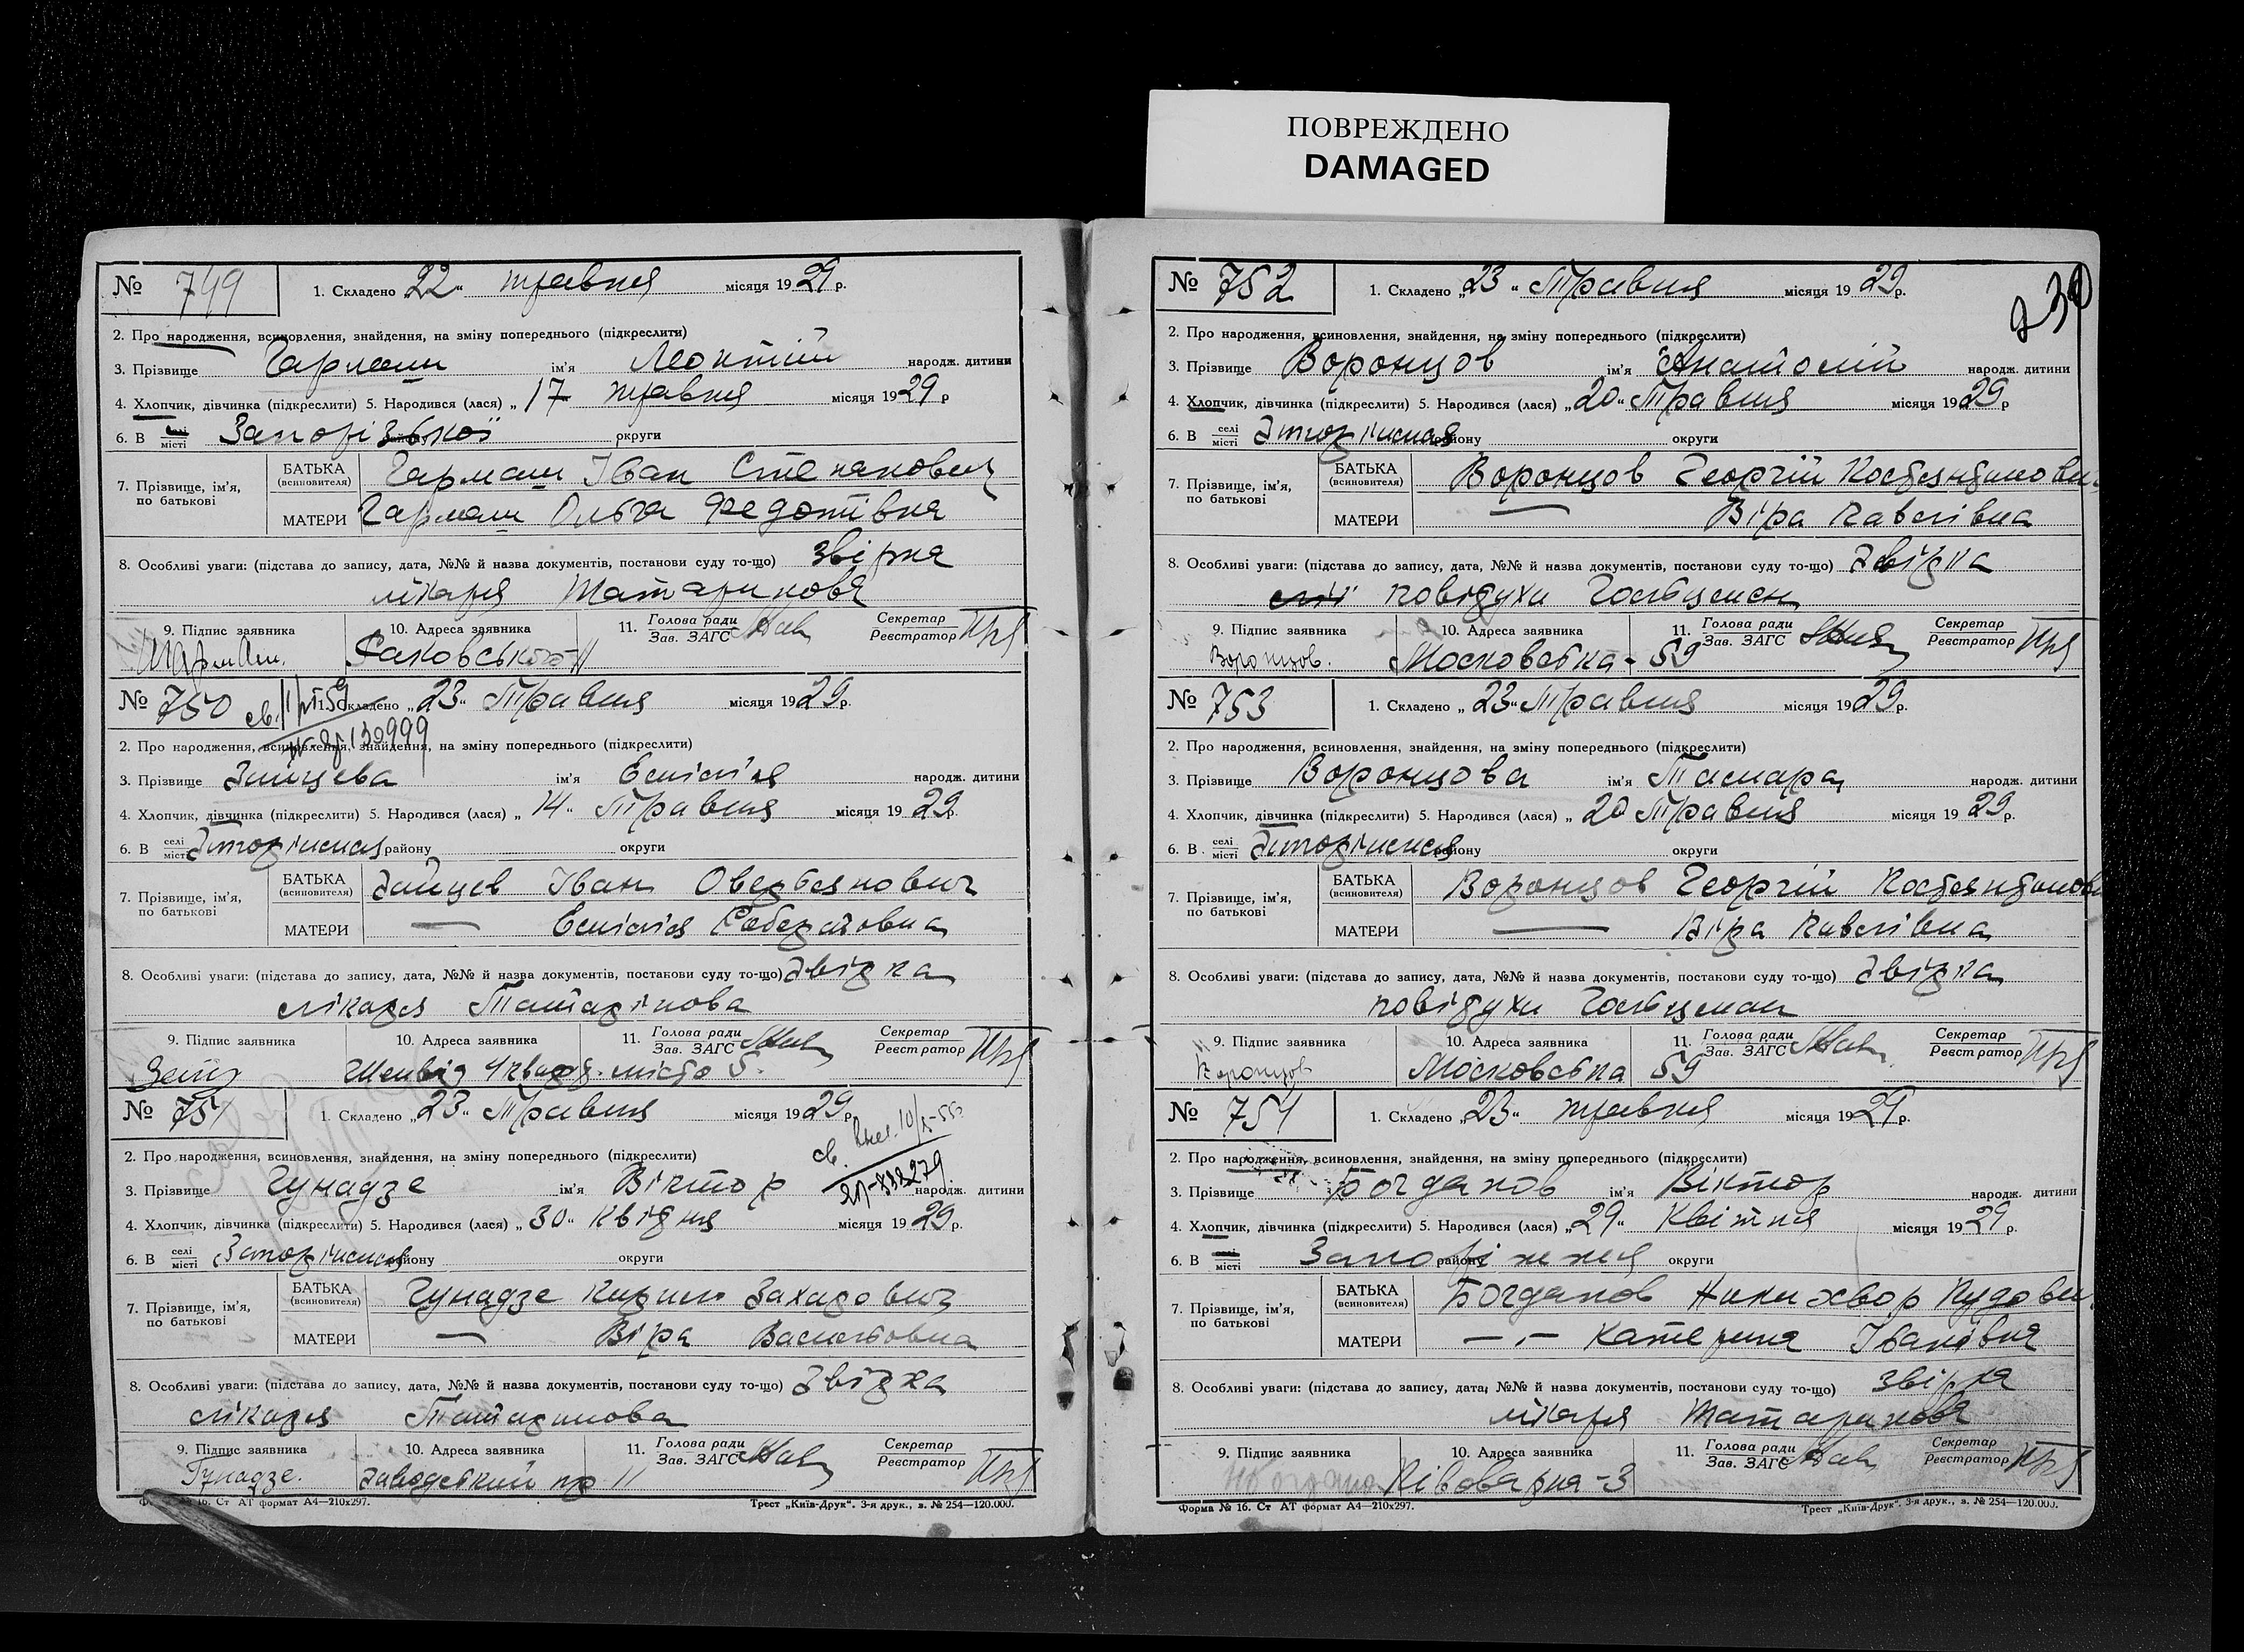 ПОВРЕЖДЕНО
DAMAGED
№ 749 1. Складено 22 " травня місяця 1929 р.
2. Про народження, всиновлення, знайдення, на зміну попереднього (підкреслити)
3. Прізвище Гармаш ім'я Леонтій народж. дитини
4. Хлопчик, дівчинка (підкреслити) 5. Народився (лася) „ 17 травня місяця 1929 р
6. В селі місті Запорізької округи
7. Прізвище, ім'я, по батькові
БАТЬКА (всиновителя) Гармаш Іван Степанович
МАТЕРИ Гармаш Ольга Федотівна
8. Особливі уваги: (підстава до запису, дата, №№ й назва документів, постанови суду то-що) звірка
лікаря Татаринова
9. Підпис заявника 10. Адреса заявника 11. Голова ради Зав. ЗАГС Секретар Реєстратор
№ 750 1. Складено „ 23 " Травня місяця 1929 р.
139999
2. Про народження, всиновлення, знайдення, на зміну попереднього (підкреслити)
3. Прізвище Зайцева ім'я Емілія народж. дитини
4. Хлопчик, дівчинка (підкреслити) 5. Народився (лася) „ 14 " Травня місяця 1929 р.
6. В селі місті району округи
7. Прізвище, ім'я, по батькові
БАТЬКА (всиновителя) Зайцев Іван
МАТЕРИ — Емілія
8. Особливі уваги: (підстава до запису, дата, №№ й назва документів, постанови суду то-що) Звірка
лікаря Татарінова
9. Підпис заявника 10. Адреса заявника 11. Голова ради Зав. ЗАГС Секретар Реєстратор
місто 5.
№ 751 1. Складено „ 23 " Травня місяця 1929 р
2. Про народження, всиновлення, знайдення, на зміну попереднього (підкреслити)
3. Прізвище Гунадзе ім'я Віктор народж. дитини
4. Хлопчик, дівчинка (підкреслити) 5. Народився (лася) „ 30 " квітня місяця 1929 р.
6. В селі місті району округи
7. Прізвище, ім'я, по батькові
БАТЬКА (всиновителя) Гунадзе Кирило Захарович
МАТЕРИ — Віра Васильовна
8. Особливі уваги: (підстава до запису, дата, №№ й назва документів, постанови суду то-що) Звірка
лікаря Татаринова
9. Підпис заявника 10. Адреса заявника 11. Голова ради Зав. ЗАГС Секретар Реєстратор
Гунадзе. Заводський пр 11
Форма № 16. Ст АТ формат А4—210х297. Трест „Київ-Друк". 3-я друк., з. № 254—120.000.
230
№ 752 1. Складено „ 23 " Травня місяця 1929 р.
2. Про народження, всиновлення, знайдення, на зміну попереднього (підкреслити)
3. Прізвище Воронцов ім'я Анатолій народж. дитини
4. Хлопчик, дівчинка (підкреслити) 5. Народився (лася) „ 20 " Травня місяця 1929 р
6. В селі місті району округи
7. Прізвище, ім'я, по батькові
БАТЬКА (всиновителя) Воронцов Георгій
МАТЕРИ — Віра Павлівна
8. Особливі уваги: (підстава до запису, дата, №№ й назва документів, постанови суду то-що) Звірка
повідухи Гольцман
9. Підпис заявника 10. Адреса заявника 11. Голова ради Зав. ЗАГС Секретар Реєстратор
Воронцов. Московська - 59
№ 753 1. Складено „ 23 " Травня місяця 1929 р.
2. Про народження, всиновлення, знайдення, на зміну попереднього (підкреслити)
3. Прізвище Воронцова ім'я Тамара народж. дитини
4. Хлопчик, дівчинка (підкреслити) 5. Народився (лася) „ 20 Травня місяця 1929 р.
6. В селі місті району округи
7. Прізвище, ім'я, по батькові
БАТЬКА (всиновителя) Воронцов Георгій
МАТЕРИ — Віра Павлівна
8. Особливі уваги: (підстава до запису, дата, №№ й назва документів, постанови суду то-що) Звірка
повідухи Гольцман
9. Підпис заявника 10. Адреса заявника 11. Голова ради Зав. ЗАГС Секретар Реєстратор
Воронцов Московська 59
№ 754 1. Складено „ 23 " травня місяця 1929 р.
2. Про народження, всиновлення, знайдення, на зміну попереднього (підкреслити)
3. Прізвище Богданов ім'я Віктор народж. дитини
4. Хлопчик, дівчинка (підкреслити) 5. Народився (лася) „ 29 " Квітня місяця 1929 р.
6. В селі місті Запоріжжя району округи
7. Прізвище, ім'я, по батькові
БАТЬКА (всиновителя) Богданов
МАТЕРИ — " — Катерина Іванівна
8. Особливі уваги: (підстава до запису, дата, №№ й назва документів, постанови суду то-що) звірка
лікаря Татаринова
9. Підпис заявника 10. Адреса заявника 11. Голова ради Зав. ЗАГС Секретар Реєстратор
Півоварня - 3
Форма № 16. Ст АТ формат А4—210х297. Трест „Київ-Друк". 3-я друк., з. № 254—120.000.